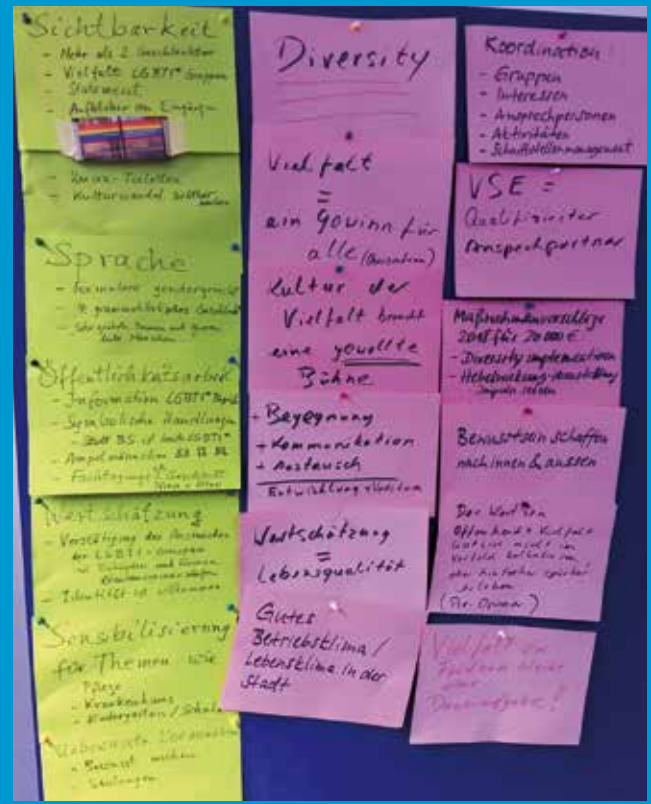 Sichtbarkeit
- Mehr als 2 Geschlechter
- Vielfalt LGBTI* Gruppen
- Statement
- Aufkleber an Eingängen
- Unisex-Toiletten
- Kulturwandel sichtbar machen
Sprache
- Formulare gendergerecht
- grammatikalisches Geschlecht
- Sehr geehrte Damen und Herren
liebe Menschen
Öffentlichkeitsarbeit
- Information LGBTI*
- Symbolische Handlungen
- Stadt BS ist bunt LGBTI*
- Ampelmännchen
- Fachtagungen
Wertschätzung
- der LGBTI-Gruppen
- Identität ist willkommen
Sensibilisierung
für Themen wie
Pflege
- Krankenhaus
- Kindergarten / Schule
- Bewusst machen
- Schulungen
Diversity
Vielfalt
=
ein Gewinn für
alle
Kultur der
Vielfalt braucht
eine gewollte
Bühne
+ Begegnung
+ Kommunikation
+ Austausch
Wertschätzung
=
Lebensqualität
Gutes
Betriebsklima /
Lebensklima in der
Stadt
Koordination
- Gruppen
- Interessen
- Ansprechpersonen
- Aktivitäten
- Schnittstellenmanagement
VSE =
Qualifizierter
Ansprechpartner
Maßnahmenvorschläge
2018 für 20 000 €
- Diversity implementieren
Bewusstsein schaffen
nach innen & aussen
Der Wert von
Offenheit + Vielfalt
Vielfalt zu
fördern bleibt
eine
Daueraufgabe!